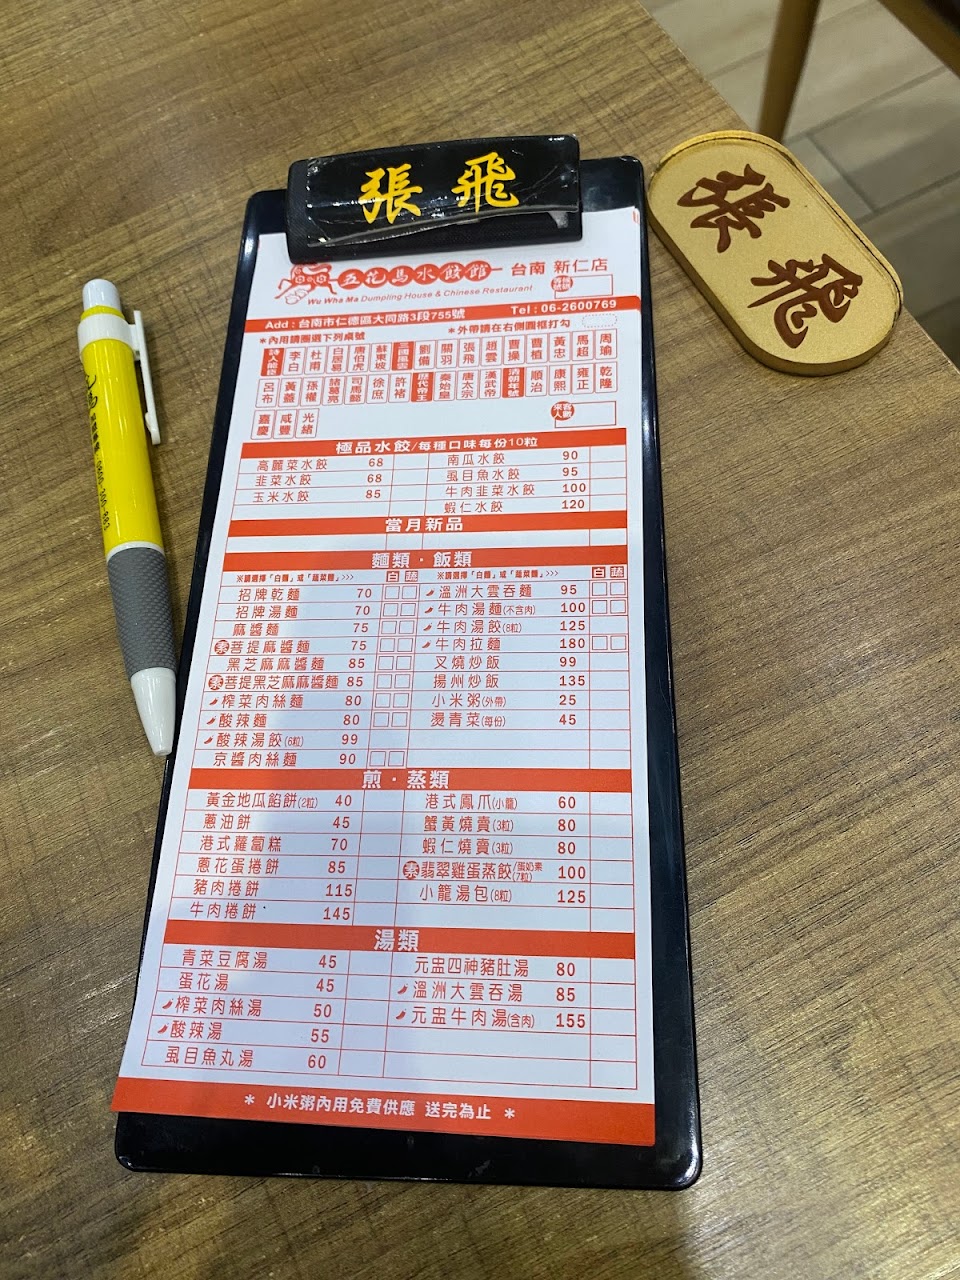 張飛
張飛
五花馬水餃館 台南 新仁店
Wu Wha Ma Dumpling House & Chinese Restaurant
Add：台南市仁德區大同路3段755號 Tel：06-2600769
＊內用請圈選下列桌號 ＊外帶請在右側圓框打勾
詩人能臣 李白 杜甫 白居易 唐伯虎 蘇東坡 三國風雲 劉備 關羽 張飛 趙雲 曹操 曹植 黃忠 馬超 周瑜
呂布 黃蓋 孫權 諸葛亮 司馬懿 徐庶 許褚 歷代帝王 秦始皇 唐太宗 漢武帝 清朝年號 順治 康熙 雍正 乾隆
嘉慶 咸豐 光緒 來客人數
極品水餃/每種口味每份10粒
高麗菜水餃 68 南瓜水餃 90
韭菜水餃 68 虱目魚水餃 95
玉米水餃 85 牛肉韭菜水餃 100
蝦仁水餃 120
當月新品
麵類・飯類
※請選擇「白麵」或「蔬菜麵」>>> 白 蔬 ※請選擇「白麵」或「蔬菜麵」>>> 白 蔬
招牌乾麵 70 溫洲大雲吞麵 95
招牌湯麵 70 牛肉湯麵(不含肉) 100
麻醬麵 75 牛肉湯餃(8粒) 125
素菩提麻醬麵 75 牛肉拉麵 180
黑芝麻麻醬麵 85 叉燒炒飯 99
素菩提黑芝麻麻醬麵 85 揚州炒飯 135
榨菜肉絲麵 80 小米粥(外帶) 25
酸辣麵 80 燙青菜(每份) 45
酸辣湯餃(6粒) 99
京醬肉絲麵 90
煎・蒸類
黃金地瓜餡餅(2粒) 40 港式鳳爪(小籠) 60
蔥油餅 45 蟹黃燒賣(3粒) 80
港式蘿蔔糕 70 蝦仁燒賣(3粒) 80
蔥花蛋捲餅 85 素翡翠雞蛋蒸餃(蛋奶素7粒) 100
豬肉捲餅 115 小籠湯包(8粒) 125
牛肉捲餅 145
湯類
青菜豆腐湯 45 元盅四神豬肚湯 80
蛋花湯 45 溫洲大雲吞湯 85
榨菜肉絲湯 50 元盅牛肉湯(含肉) 155
酸辣湯 55
虱目魚丸湯 60
＊ 小米粥內用免費供應 送完為止 ＊